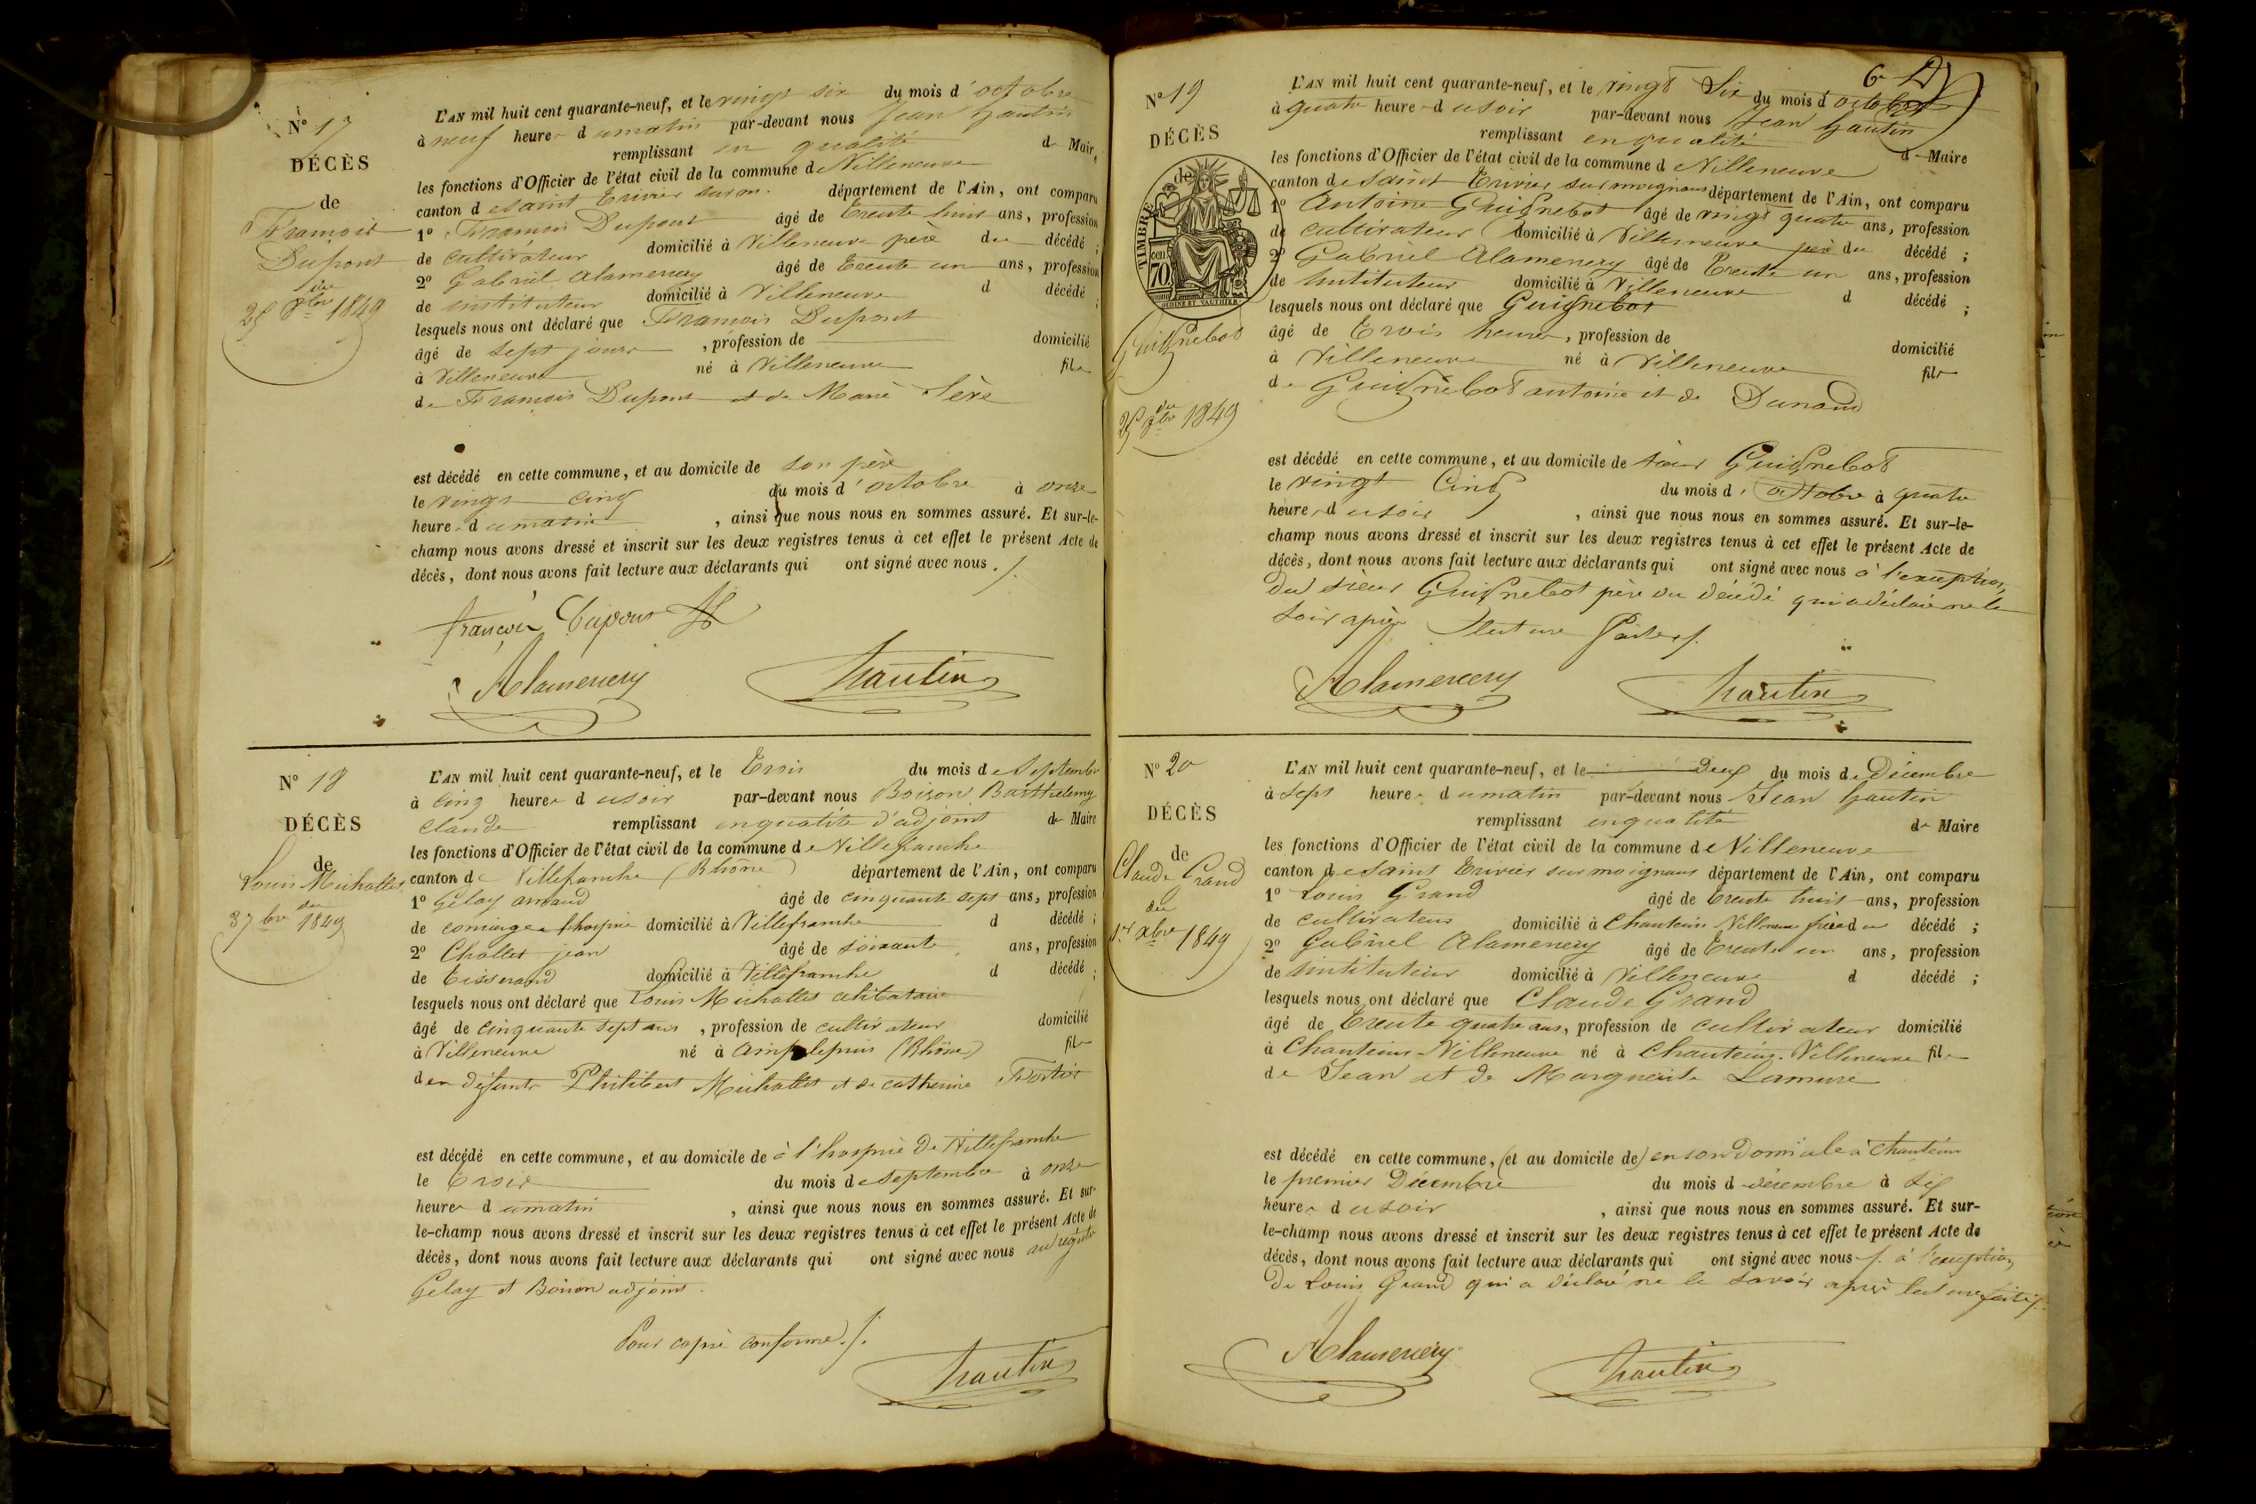 N° 17
DÉCÈS
de
François
Dupont
du
25 8bre 1849
L'AN mil huit cent quarante-neuf, et le vingt six du mois d'octobre
à neuf heures du matin par-devant nous Jean hautin
remplissant en qualité de Maire
les fonctions d'Officier de l'état civil de la commune de Villeneuve
canton de saint Trivier sur m. département de l'Ain, ont comparu
1° François Dupont âgé de Trente huit ans, profession
de cultivateur domicilié à Villeneuve père du décédé ;
2° Gabriel Alamercery âgé de Trente un ans, profession
de instituteur domicilié à Villeneuve d décédé ;
lesquels nous ont déclaré que François Dupont
âgé de sept jours , profession de domicilié
à Villeneuve né à Villeneuve fils
de François Dupont et de Marie Sève
est décédé en cette commune, et au domicile de son père
le vingt cinq du mois d'octobre à onze
heures du matin , ainsi que nous nous en sommes assuré. Et sur-le-
champ nous avons dressé et inscrit sur les deux registres tenus à cet effet le présent Acte de
décès, dont nous avons fait lecture aux déclarants qui ont signé avec nous ./.
françois Dupont
Alamercery hautin
N° 18
DÉCÈS
de
Louis Michallet
du
3 7bre 1849
L'AN mil huit cent quarante-neuf, et le Trois du mois de Septembre
à cinq heures du soir par-devant nous Boiron Barthelemy
Claude remplissant en qualité d'adjoint de Maire
les fonctions d'Officier de l'état civil de la commune de Villefranche
canton de Villefranche (Rhône) département de l'Ain, ont comparu
1° Gelay âgé de cinquante sept ans, profession
de concierge à l'hospice domicilié à Villefranche d décédé ;
2° Chollet jean âgé de soixante ans, profession
de Tisserand domicilié à Villefranche d décédé ;
lesquels nous ont déclaré que Louis Michallet célibataire
âgé de cinquante sept ans , profession de cultivateur domicilié
à Villeneuve né à amplepuis (Rhône) fils
de défunts Philibert Michallet et de catherine
est décédé en cette commune, et au domicile de à l'hospice de Villefranche
le Trois du mois de septembre à onze
heures du matin , ainsi que nous nous en sommes assuré. Et sur-
le-champ nous avons dressé et inscrit sur les deux registres tenus à cet effet le présent Acte de
décès, dont nous avons fait lecture aux déclarants qui ont signé avec nous au registre
Gelay et Boiron adjoint.
Pour copie conforme ./.
hautin
N° 19
DÉCÈS
de
TIMBRE
70
Guignebot
du
25 8bre 1849
L'AN mil huit cent quarante-neuf, et le vingt Six du mois d'octobre
à quatre heures du soir par-devant nous Jean hautin
remplissant en qualité de Maire
les fonctions d'Officier de l'état civil de la commune de Villeneuve
canton de saint Trivier sur moignans département de l'Ain, ont comparu
1° Antoine Guignebot âgé de vingt quatre ans, profession
de cultivateur domicilié à Villeneuve père du décédé ;
2° Gabriel Alamercery âgé de Trente un ans, profession
de instituteur domicilié à Villeneuve d décédé ;
lesquels nous ont déclaré que Guignebot
âgé de Trois heures , profession de domicilié
à Villeneuve né à Villeneuve fils
de Guignebot antoine et de Dunand
est décédé en cette commune, et au domicile de sieur Guignebot
le vingt Cinq du mois d'octobre à quatre
heures du soir , ainsi que nous nous en sommes assuré. Et sur-le-
champ nous avons dressé et inscrit sur les deux registres tenus à cet effet le présent Acte de
décès, dont nous avons fait lecture aux déclarants qui ont signé avec nous à l'exception
du sieur Guignebot père du décédé qui a déclaré ne le
savoir après lecture faite ./.
Alamercery hautin
N° 20
DÉCÈS
de
Claude Grand
du
1er Xbre 1849
L'AN mil huit cent quarante-neuf, et le Deux du mois de Décembre
à sept heures du matin par-devant nous Jean hautin
remplissant en qualité de Maire
les fonctions d'Officier de l'état civil de la commune de Villeneuve
canton de saint Trivier sur moignans département de l'Ain, ont comparu
1° Louis Grand âgé de Trente huit ans, profession
de cultivateur domicilié à Chanteins Villeneuve frère du décédé ;
2° Gabriel Alamercery âgé de Trente un ans, profession
de instituteur domicilié à Villeneuve d décédé ;
lesquels nous ont déclaré que Claude Grand
âgé de Trente quatre ans, profession de cultivateur domicilié
à Chanteins Villeneuve né à Chanteins Villeneuve fils
de Jean et de Marguerite Lamure
est décédé en cette commune, (et au domicile de) en son domicile à Chanteins
le premier Décembre du mois d décembre à six
heures du soir , ainsi que nous nous en sommes assuré. Et sur-
le-champ nous avons dressé et inscrit sur les deux registres tenus à cet effet le présent Acte de
décès, dont nous avons fait lecture aux déclarants qui ont signé avec nous ./. à l'exception
de Louis Grand qui a déclaré ne le savoir après lecture faite ./.
Alamercery hautin